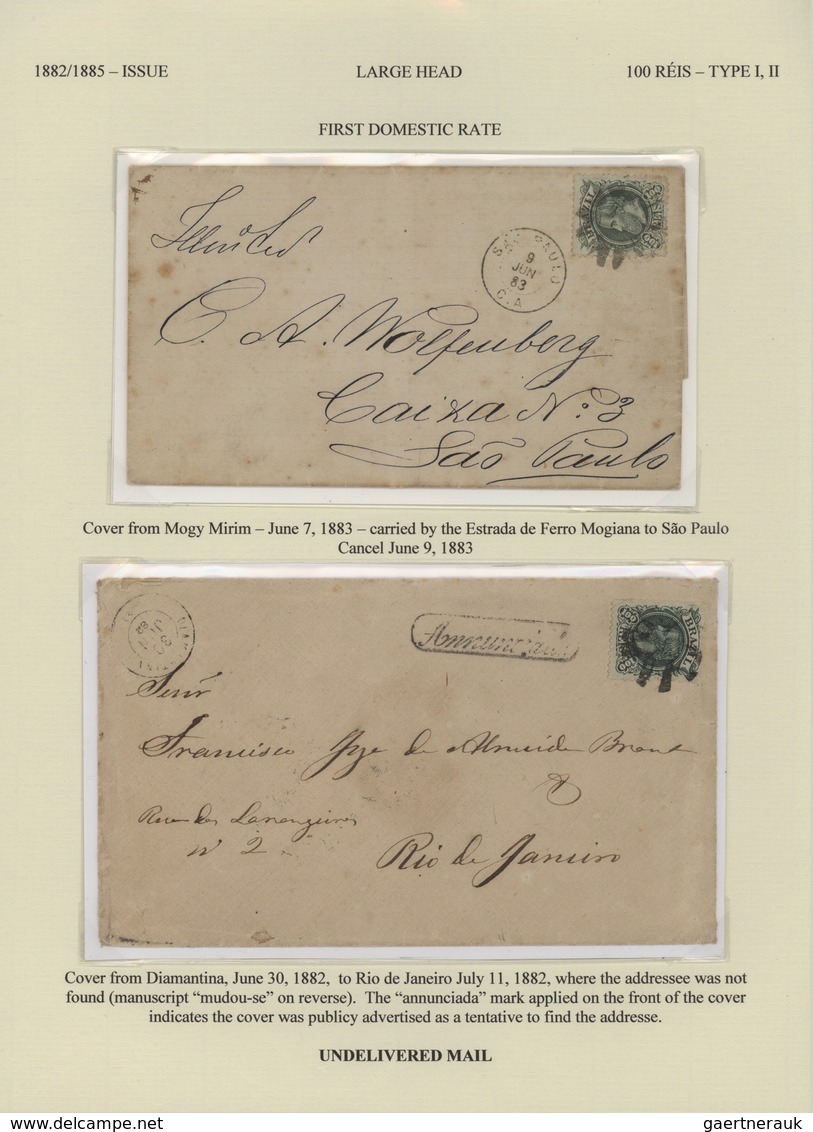 1882/1885 – ISSUE LARGE HEAD 100 RÉIS – TYPE I, II
FIRST DOMESTIC RATE
BRAZIL
SÃO PAULO
9
JUN
83
C.A
C. A. Wolfenberg
Caixa Nº 3
São Paulo
Cover from Mogy Mirim – June 7, 1883 – carried by the Estrada de Ferro Mogiana to São Paulo
Cancel June 9, 1883
Annunciada
BRAZIL
Senr
Francisco de Almeida Brant
Rua das Larangeiras
nº 2
Rio de Janeiro
Cover from Diamantina, June 30, 1882, to Rio de Janeiro July 11, 1882, where the addressee was not
found (manuscript “mudou-se” on reverse). The “annunciada” mark applied on the front of the cover
indicates the cover was publicy advertised as a tentative to find the addresse.
UNDELIVERED MAIL
DELCAMPE.NET
gaertnerauk